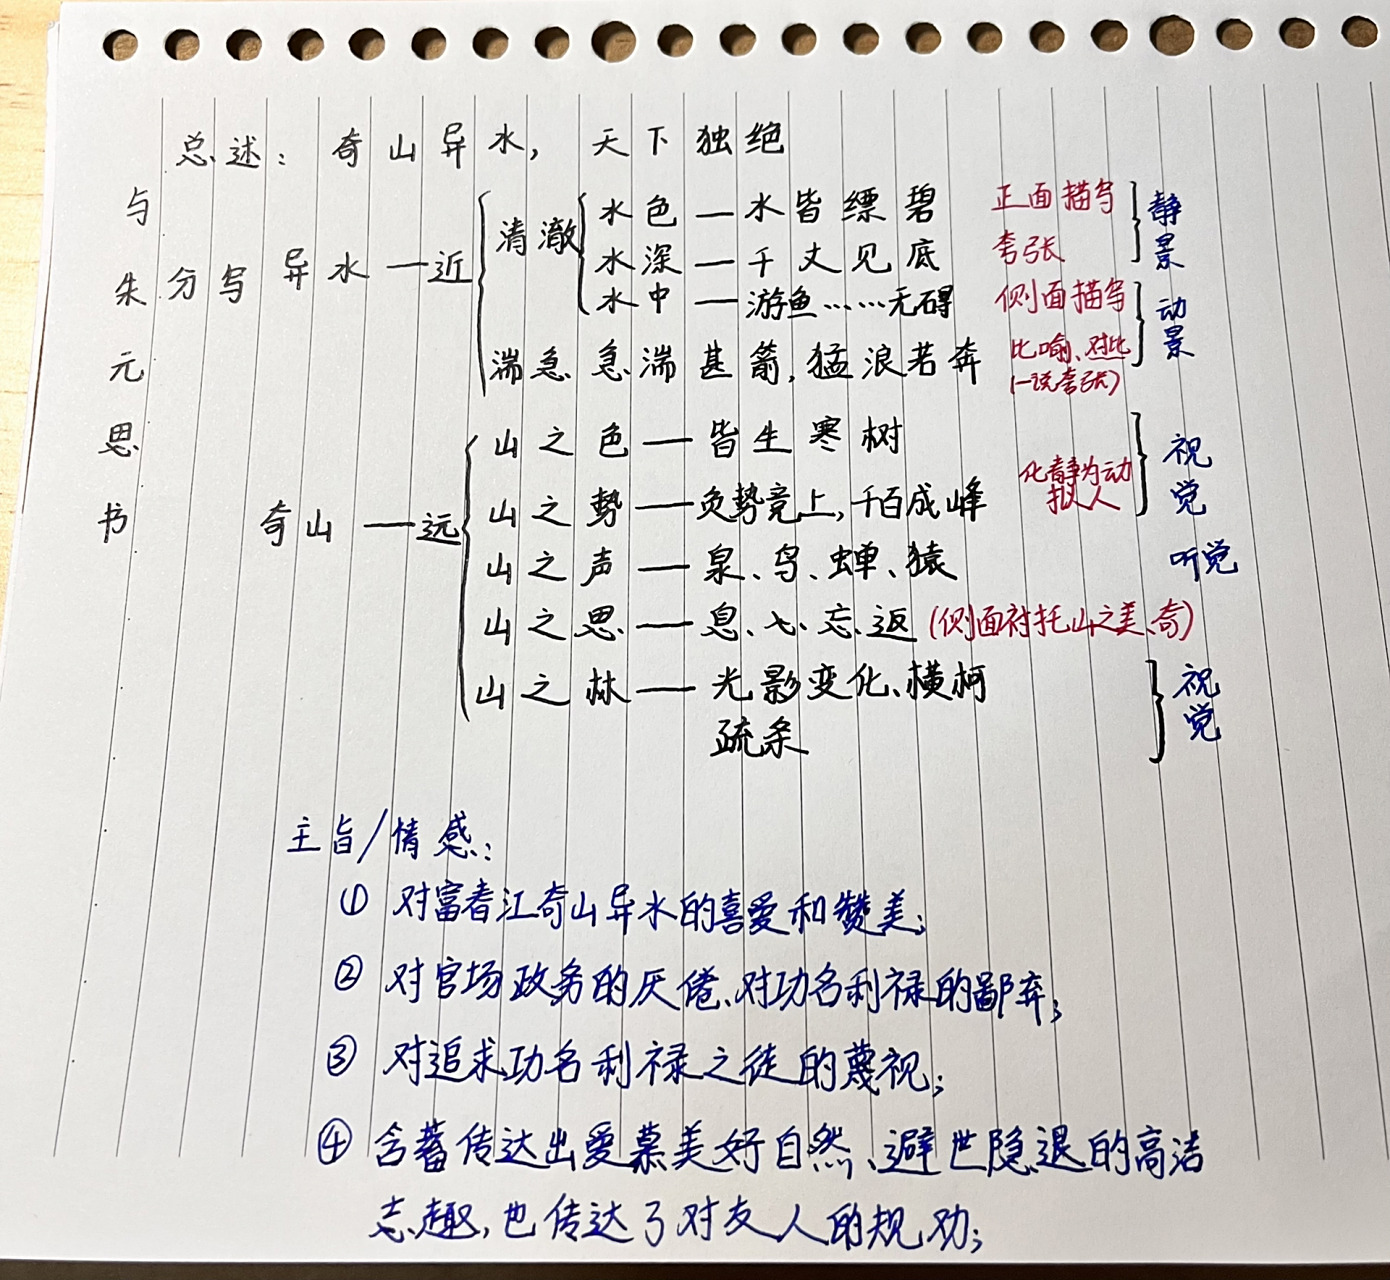 总述：奇山异水，天下独绝
与朱元思书
分写
异水—近
清澈
水色—水皆缥碧 正面描写
水深—千丈见底 夸张
静景
水中—游鱼……无碍 侧面描写
湍急 急湍甚箭，猛浪若奔 比喻、对比
(一说夸张)
动景
奇山—远
山之色—皆生寒树
山之势—负势竞上，千百成峰
化静为动
拟人
视觉
山之声—泉、鸟、蝉、猿 听觉
山之思—息心忘返 (侧面衬托山之美、奇)
山之林—光影变化、横柯
疏条
视觉
主旨/情感：
① 对富春江奇山异水的喜爱和赞美；
② 对官场政务的厌倦、对功名利禄的鄙弃；
③ 对追求功名利禄之徒的蔑视；
④ 含蓄传达出爱慕美好自然、避世隐退的高洁
志趣，也传达了对友人的规劝；